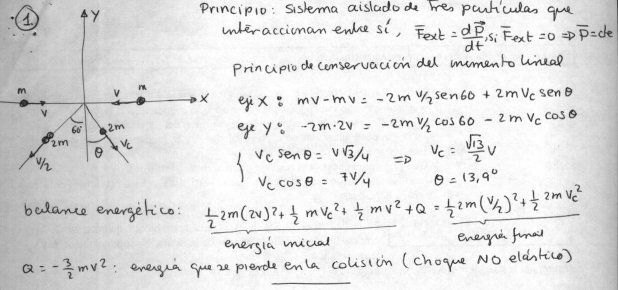 1
Y
Principio: Sistema aislado de Tres partículas que
interaccionan entre sí, F̄ext = dP⃗/dt, si F̄ext = 0 ⇒ P̄ = cte
Principio de conservación del momento lineal
m v v m X
eje X: mv - mv = -2m v/2 sen60 + 2m Vc senθ
eje Y: -2m·2v = -2m v/2 cos60 - 2m Vc cosθ
60° 2m 2m
v/2 θ Vc
{ Vc senθ = v√3/4 ⇒ Vc = √13/2 v
Vc cosθ = 7v/4 θ = 13,9°
balance energético: 1/2 2m(2v)² + 1/2 mVc² + 1/2 mv² + Q = 1/2 2m(v/2)² + 1/2 2m Vc²
energía inicial energía final
Q = -3/2 mv²: energía que se pierde en la colisión (choque NO elástico)